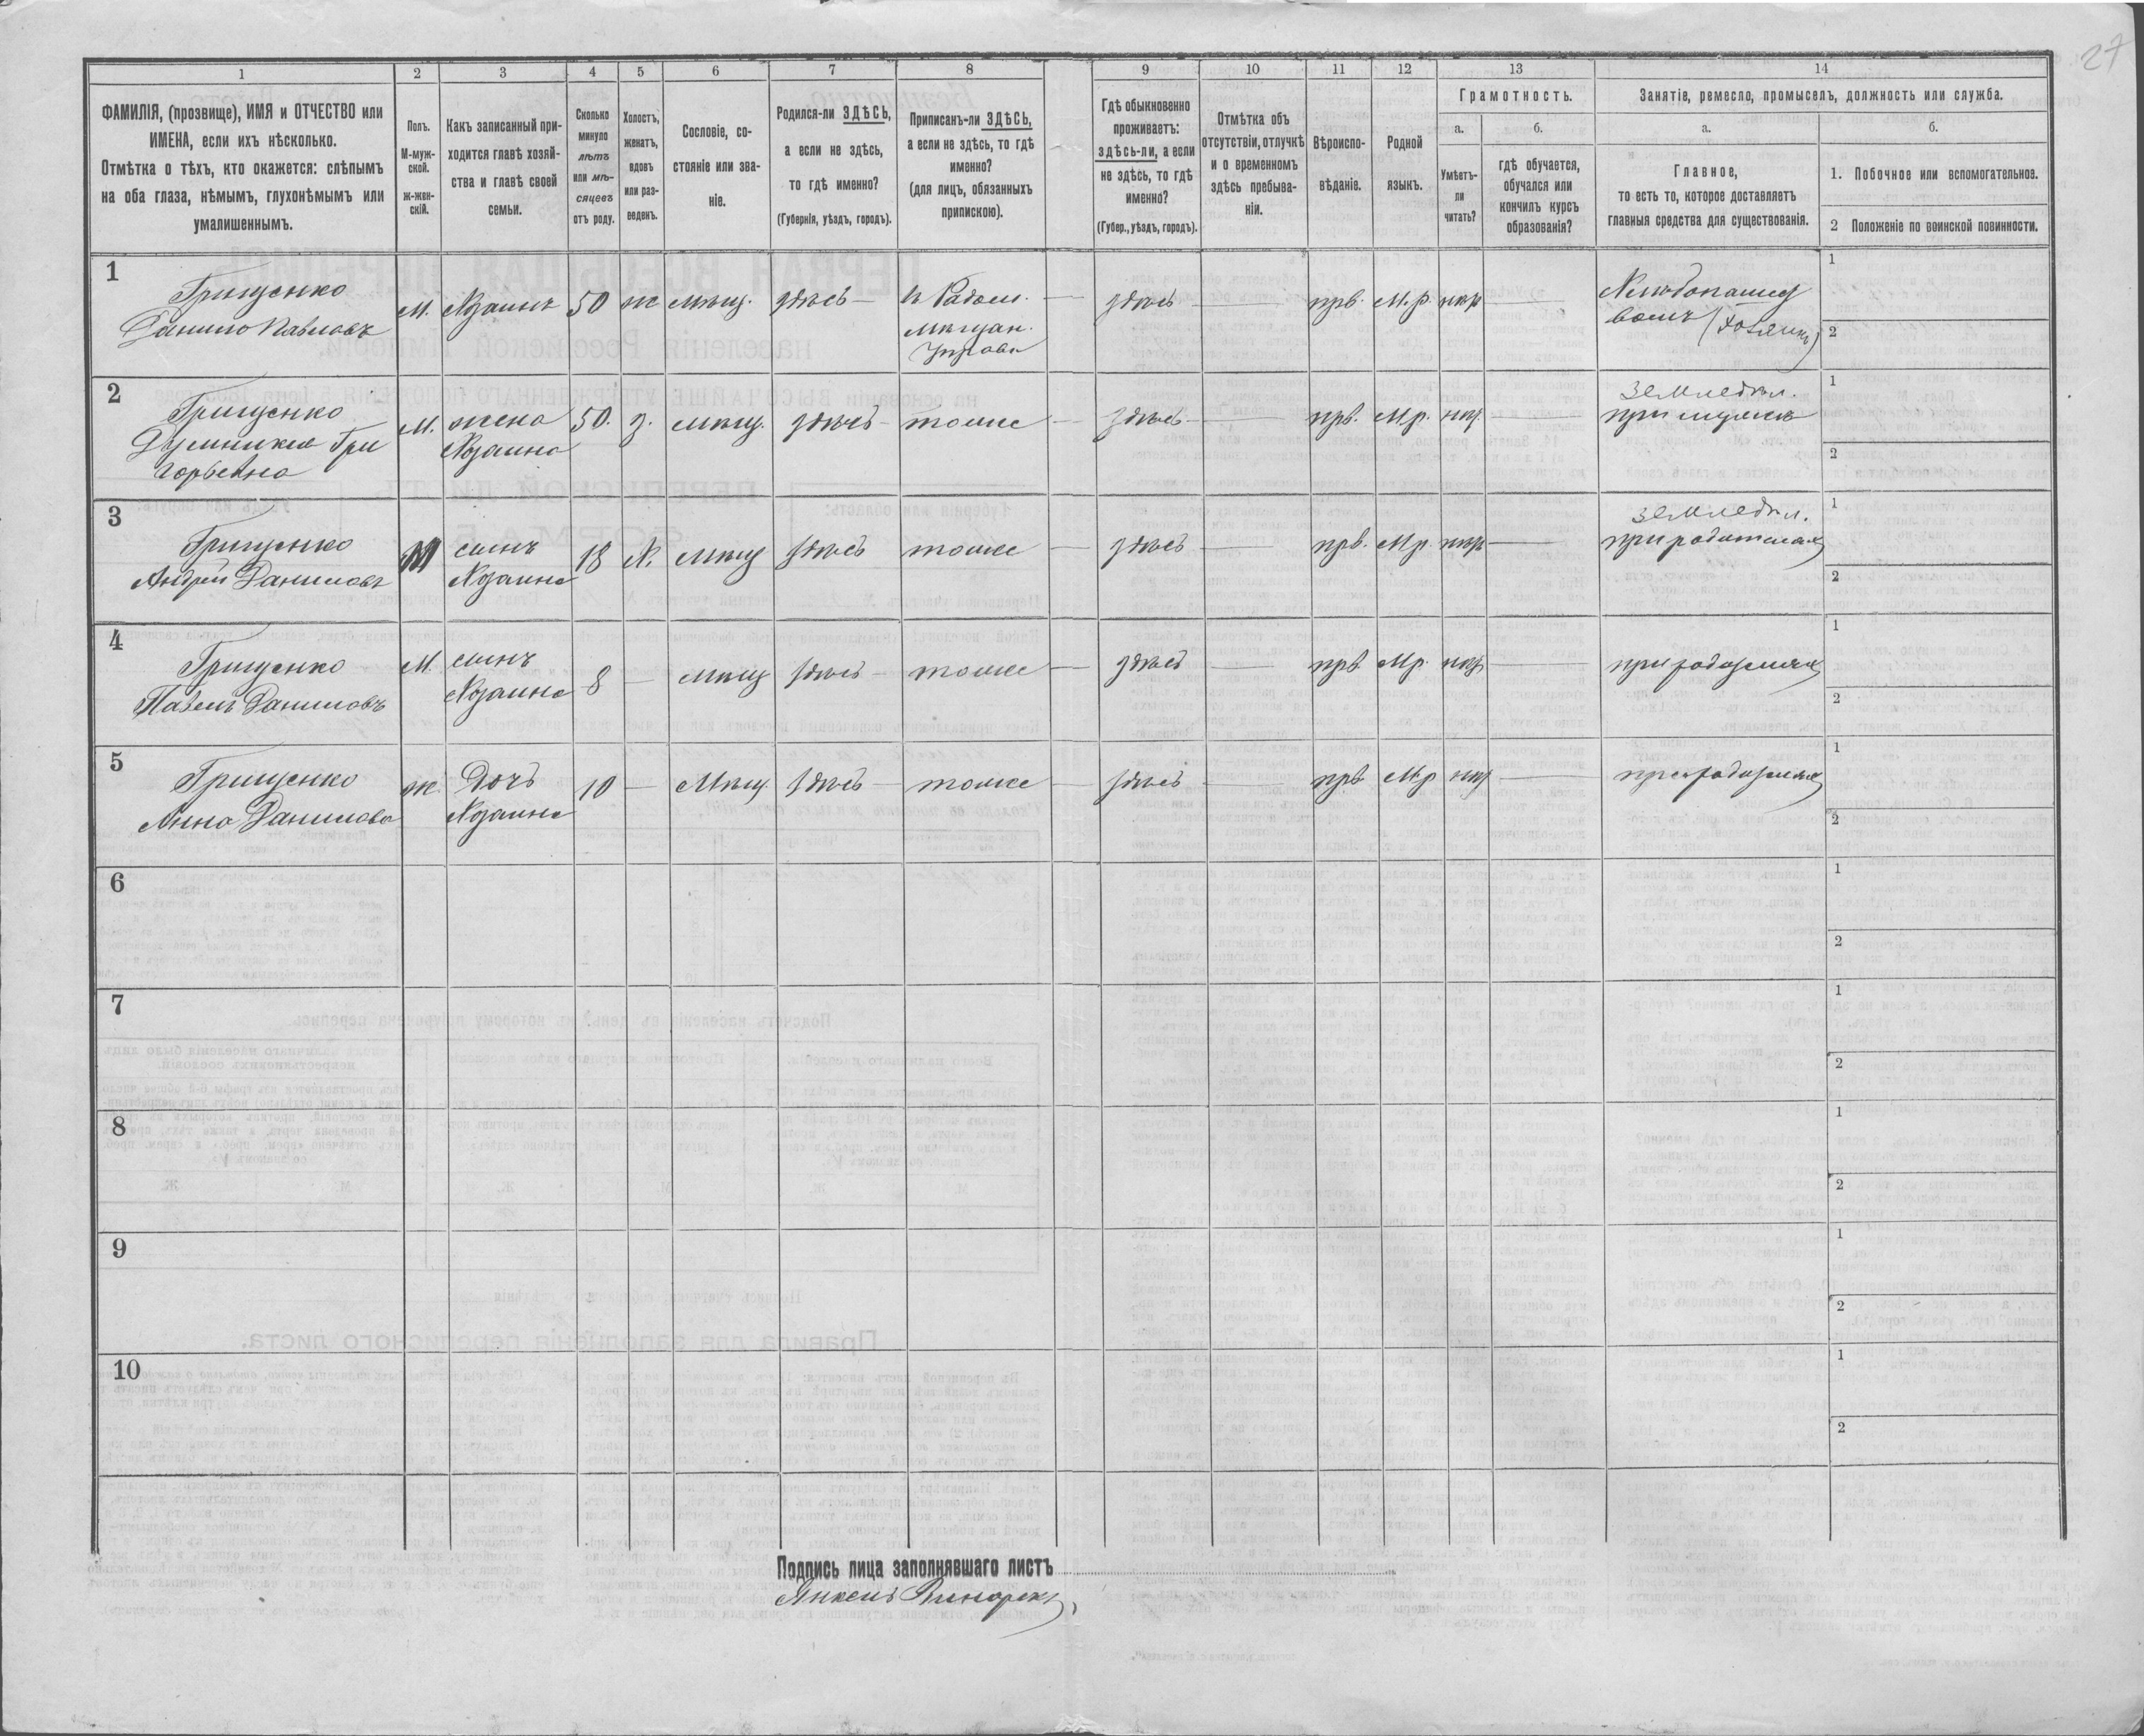 27
1 2 3 4 5 6 7 8 9 10 11 12 13 14
ФАМИЛІЯ, (прозвище), ИМЯ и ОТЧЕСТВО или
ИМЕНА, если ихъ нѣсколько.
Отмѣтка о тѣхъ, кто окажется: слѣпымъ
на оба глаза, нѣмымъ, глухонѣмымъ или
умалишеннымъ.
Полъ.
М-муж-
ской.
ж-жен-
скій.
Какъ записанный при-
ходится главѣ хозяй-
ства и главѣ своей
семьи.
Сколько
минуло
лѣтъ
или мѣ-
сяцевъ
отъ роду.
Холостъ,
женатъ,
вдовъ
или раз-
веденъ.
Сословіе, со-
стояніе или зва-
ніе.
Родился-ли ЗДѢСЬ,
а если не здѣсь,
то гдѣ именно?
(Губернія, уѣздъ, городъ).
Приписанъ-ли ЗДѢСЬ,
а если не здѣсь, то гдѣ
именно?
(для лицъ, обязанныхъ
припискою).
Гдѣ обыкновенно
проживаетъ:
здѣсь-ли, а если
не здѣсь, то гдѣ
именно?
(Губер., уѣздъ, городъ).
Отмѣтка объ
отсутствіи, отлучкѣ
и о временномъ
здѣсь пребыва-
ніи.
Вѣроиспо-
вѣданіе.
Родной
языкъ.
Грамотность.
а.
Умѣетъ-
ли
читать?
б.
гдѣ обучается,
обучался или
кончилъ курсъ
образованія?
Занятіе, ремесло, промыселъ, должность или служба.
а.
Главное,
то есть то, которое доставляетъ
главныя средства для существованія.
б.
1. Побочное или вспомогательное.
2 Положеніе по воинской повинности.
1
Грищенко
Данило Павловъ
М. Хозаинъ 50 ж мѣщ. здѣсь —
Мѣщан.
Управы
здѣсь — прв. М.р. нѣр —
1
2
2
Грищенко
Гри
горьевна
М. жена
Хозаина
50. з. мѣщ. здѣсь — тоже — здѣсь — прв. М.р. нѣр —
земледѣл.
при мужѣ
1
2
3
Грищенко
Андрей Даниловъ
М сынъ
Хозаина
18 Х. мѣщ здѣсь тоже — здѣсь — прв. М.р. нѣр —
земледѣл.
при родителях
1
2
4
Грищенко
Павелъ Даниловъ
М. сынъ
Хозаина
8 — мѣщ здѣсь — тоже — здѣсь — прв М.р. нѣр —
при родителях
1
2
5
Грищенко
Анна Данилова
ж. Дочь
Хозаина
10 — Мѣщ. здѣсь — тоже — здѣсь — прв М.р нѣр —
при родителях
1
2
6
1
2
7
1
2
8
1
2
9
1
2
10
1
2
Подпись лица заполнявшаго листъ